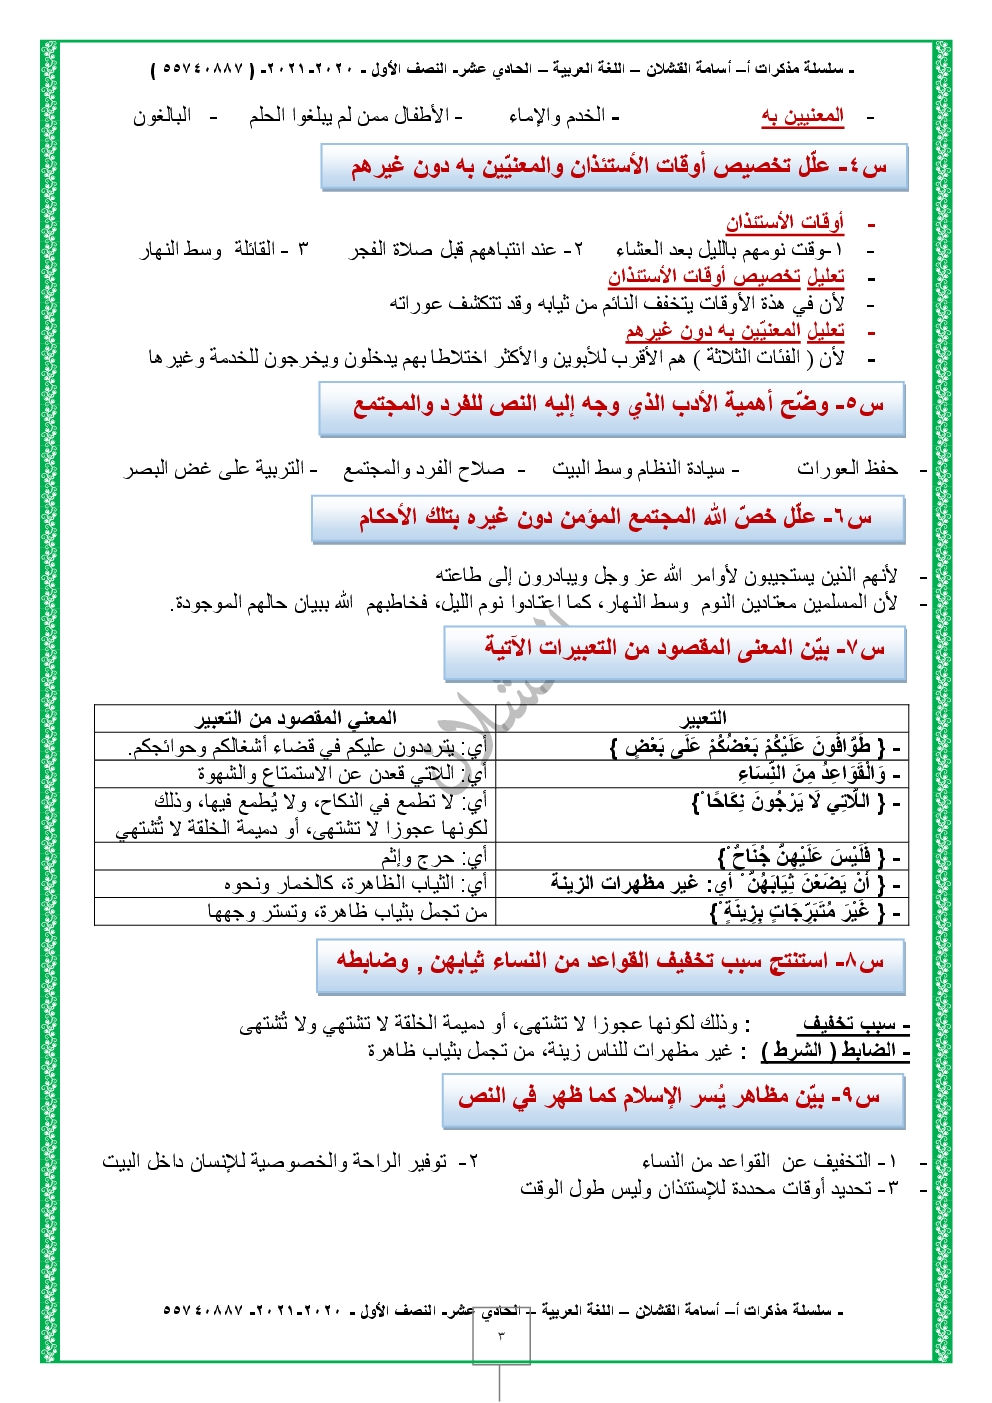 - سلسلة مذكرات أ– أسامة القشلان – اللغة العربية – الحادي عشر- النصف الأول - ٢٠٢٠-٢٠٢١- ( ٥٥٧٤٠٨٨٧ )
- المعنيين به - الخدم والإماء - الأطفال ممن لم يبلغوا الحلم - البالغون
س٤- علّل تخصيص أوقات الأستئذان والمعنيّين به دون غيرهم
- أوقات الأستئذان
- ١-وقت نومهم بالليل بعد العشاء ٢- عند انتباههم قبل صلاة الفجر ٣ - القائلة وسط النهار
- تعليل تخصيص أوقات الأستئذان
- لأن في هذة الأوقات يتخفف النائم من ثيابه وقد تتكشف عوراته
- تعليل المعنيّين به دون غيرهم
- لأن ( الفئات الثلاثة ) هم الأقرب للأبوين والأكثر اختلاطا بهم يدخلون ويخرجون للخدمة وغيرها
س٥- وضّح أهمية الأدب الذي وجه إليه النص للفرد والمجتمع
- حفظ العورات - سيادة النظام وسط البيت - صلاح الفرد والمجتمع - التربية على غض البصر
س٦- علّل خصّ الله المجتمع المؤمن دون غيره بتلك الأحكام
- لأنهم الذين يستجيبون لأوامر الله عز وجل ويبادرون إلى طاعته
- لأن المسلمين معتادين النوم وسط النهار، كما اعتادوا نوم الليل، فخاطبهم الله ببيان حالهم الموجودة.
س٧- بيّن المعنى المقصود من التعبيرات الآتية
التعبير المعني المقصود من التعبير
- { طَوَّافُونَ عَلَيْكُمْ بَعْضُكُمْ عَلَى بَعْضٍ } أي: يترددون عليكم في قضاء أشغالكم وحوائجكم.
- وَالْقَوَاعِدُ مِنَ النِّسَاءِ أي: اللاتي قعدن عن الاستمتاع والشهوة
- { اللَّاتِي لَا يَرْجُونَ نِكَاحًا ْ} أي: لا تطمع في النكاح، ولا يُطمع فيها، وذلك
لكونها عجوزا لا تشتهى، أو دميمة الخلقة لا تُشتهي
- { فَلَيْسَ عَلَيْهِنَّ جُنَاحٌ ْ} أي: حرج وإثم
- { أَنْ يَضَعْنَ ثِيَابَهُنَّ ْ أي: غير مظهرات الزينة أي: الثياب الظاهرة، كالخمار ونحوه
- { غَيْرَ مُتَبَرِّجَاتٍ بِزِينَةٍ ْ} من تجمل بثياب ظاهرة، وتستر وجهها
القشلان
س٨- استنتج سبب تخفيف القواعد من النساء ثيابهن , وضابطه
- سبب تخفيف : وذلك لكونها عجوزا لا تشتهى، أو دميمة الخلقة لا تشتهي ولا تُشتهى
- الضابط ( الشرط ) : غير مظهرات للناس زينة، من تجمل بثياب ظاهرة
س٩- بيّن مظاهر يُسر الإسلام كما ظهر في النص
- ١- التخفيف عن القواعد من النساء ٢- توفير الراحة والخصوصية للإنسان داخل البيت
- ٣- تحديد أوقات محددة للإستئذان وليس طول الوقت
- سلسلة مذكرات أ– أسامة القشلان – اللغة العربية – الحادي عشر- النصف الأول - ٢٠٢٠-٢٠٢١- ٥٥٧٤٠٨٨٧
٣